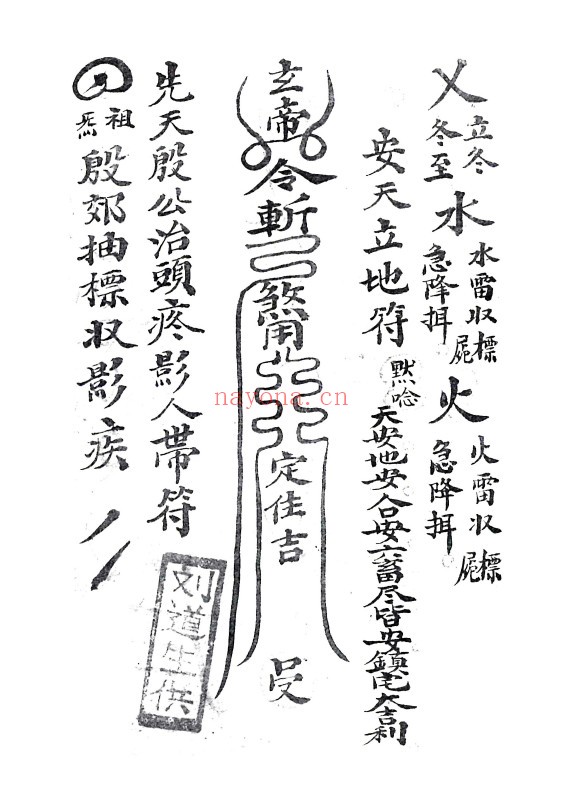 乂
立冬
冬至
水
水雷収標
急降挕
火
火雷収標
急降挕
安天立地符
默唸
天安地安合安六畜尽皆安鎮宅大吉利
玄帝令斬
煞用
定住吉
先天殷公治頭疼影人帶符
祖
炁
殷郊抽標収影疾
刘道生供
nayona.cn